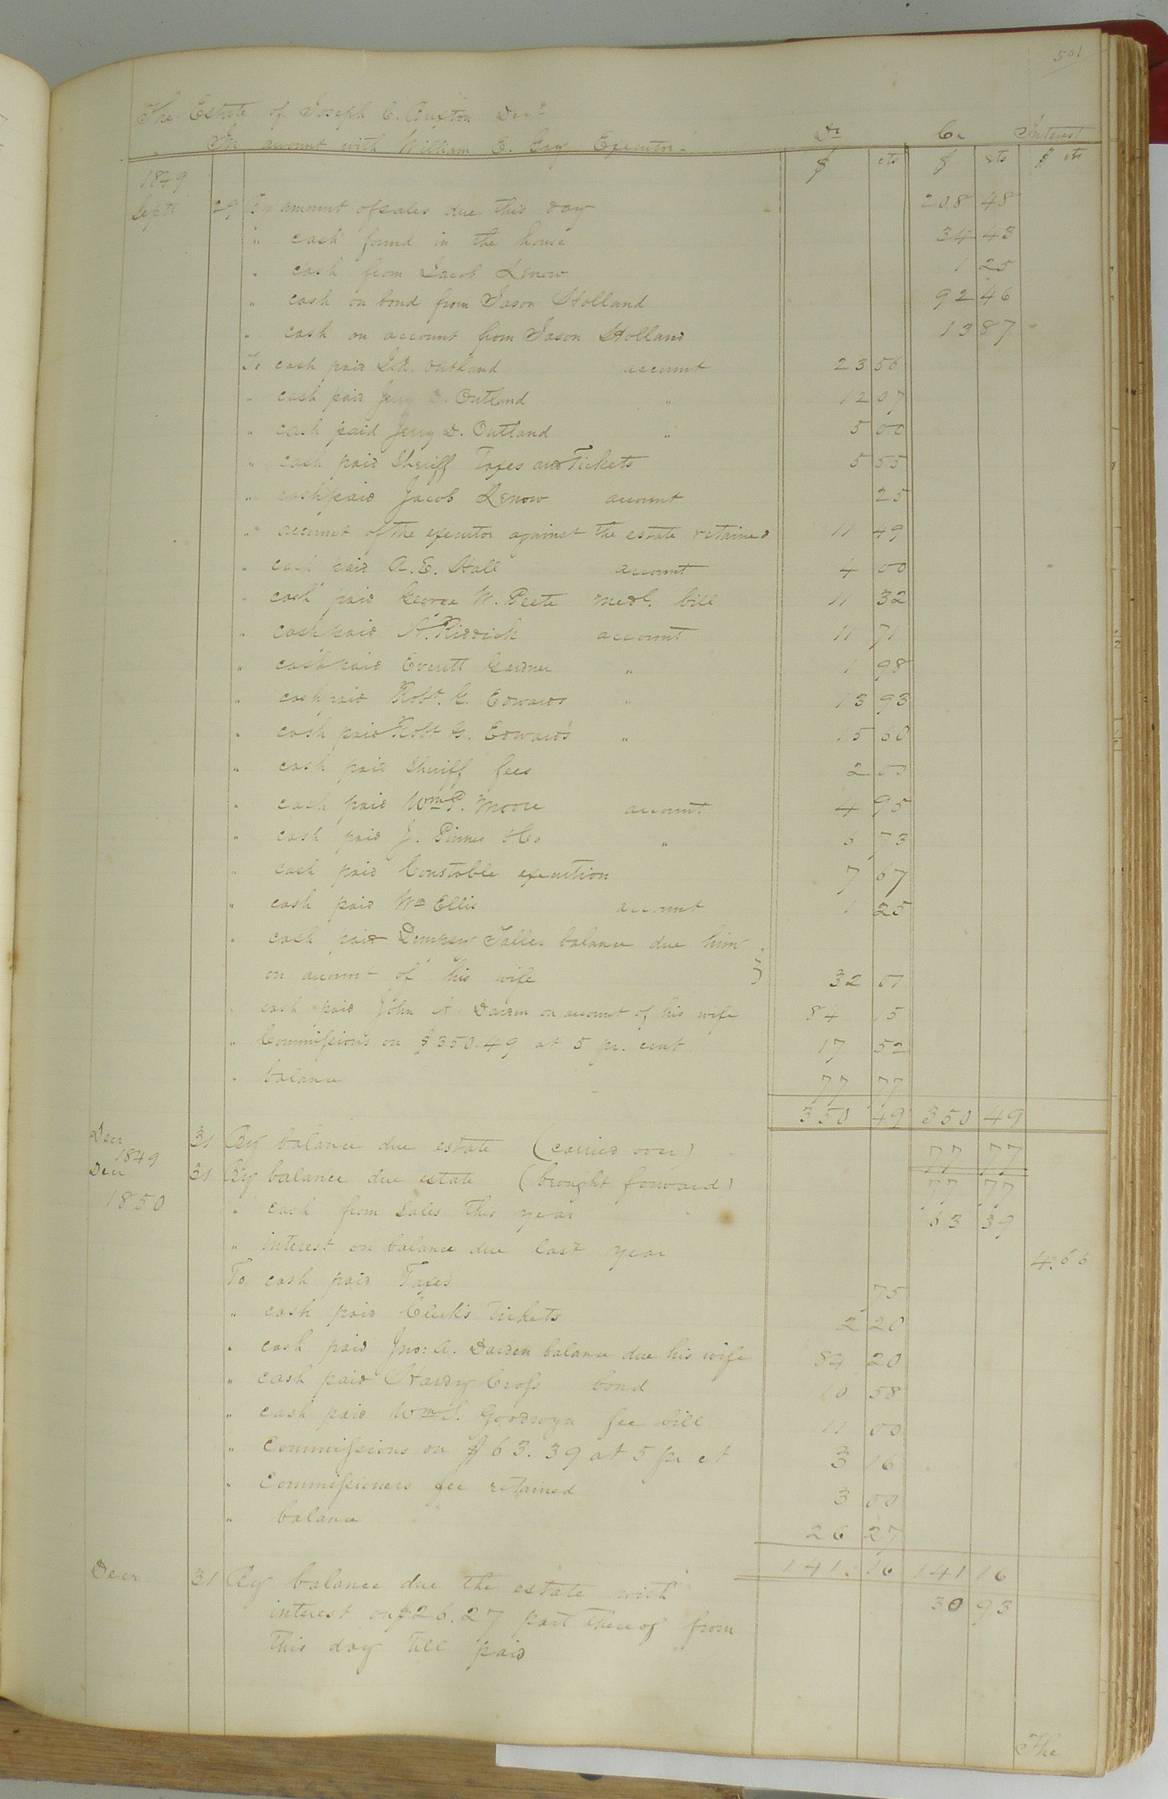 501
The Estate of Joseph C. Buxton Decd
In account with William E. Gay Executor Dr Cr Interest
$ cts $ cts $ cts
1849
Sept 29 By amount of sales due this day 208 48
" cash found in the house 34 43
" cash from Jacob Lenow 1 25
" cash on bond from Jason Holland 92 46
" cash on account from Jason Holland 13 87
To cash paid Outland account 23 56
" cash paid Jerry D. Outland " 12 07
" cash paid Jerry D. Outland " 5 00
" cash paid Sheriff Taxes and Tickets 5 55
" cash paid Jacob Lenow account 25
" account of the executor against the estate retained 11 49
" cash paid A. E. Hall account 4 00
" cash paid George W. Peete Medl. bill 11 32
" cash paid A. Riddick account 11 71
" cash paid Everitt Gardner " 1 98
" cash paid Robt. G. Edwards " 13 93
" cash paid Robt G. Edwards " 15 60
" cash paid Sheriff fees 2 00
" cash paid Wm P. Moore account 4 95
" cash paid J. Pinner & Co " 6 73
" cash paid Constable execution 7 67
" cash paid Wm Ellis account 1 25
" cash paid Dempsey balance due him
on account of his wife 32 01
" cash paid John A. Darden on account of his wife 84 15
" Commissions on $350.49 at 5 pr. cent 17 52
" balance 77 77
350 49 350 49
Decr 31 By balance due estate (carried over) 77 77
1849
Decr 31 By balance due estate (brought forward) 77 77
1850 " cash from sales this year 63 39
" interest on balance due last year 4.66
To cash paid Taxes 75
" cash paid Clerk's Tickets 2 20
" cash paid Jno: A. Darden balance due his wife 84 20
" cash paid Hardy Cross bond 10 58
" cash paid Wm S. Goodwyn fee bill 11 00
" Commissions on $63.39 at 5 pr ct 3 16
" Commissioners fee retained 3 00
" balance 26 27
141. 16 141 16
Decr 31 By balance due the estate with 30 93
interest on $26.27 part thereof from
this day till paid
The